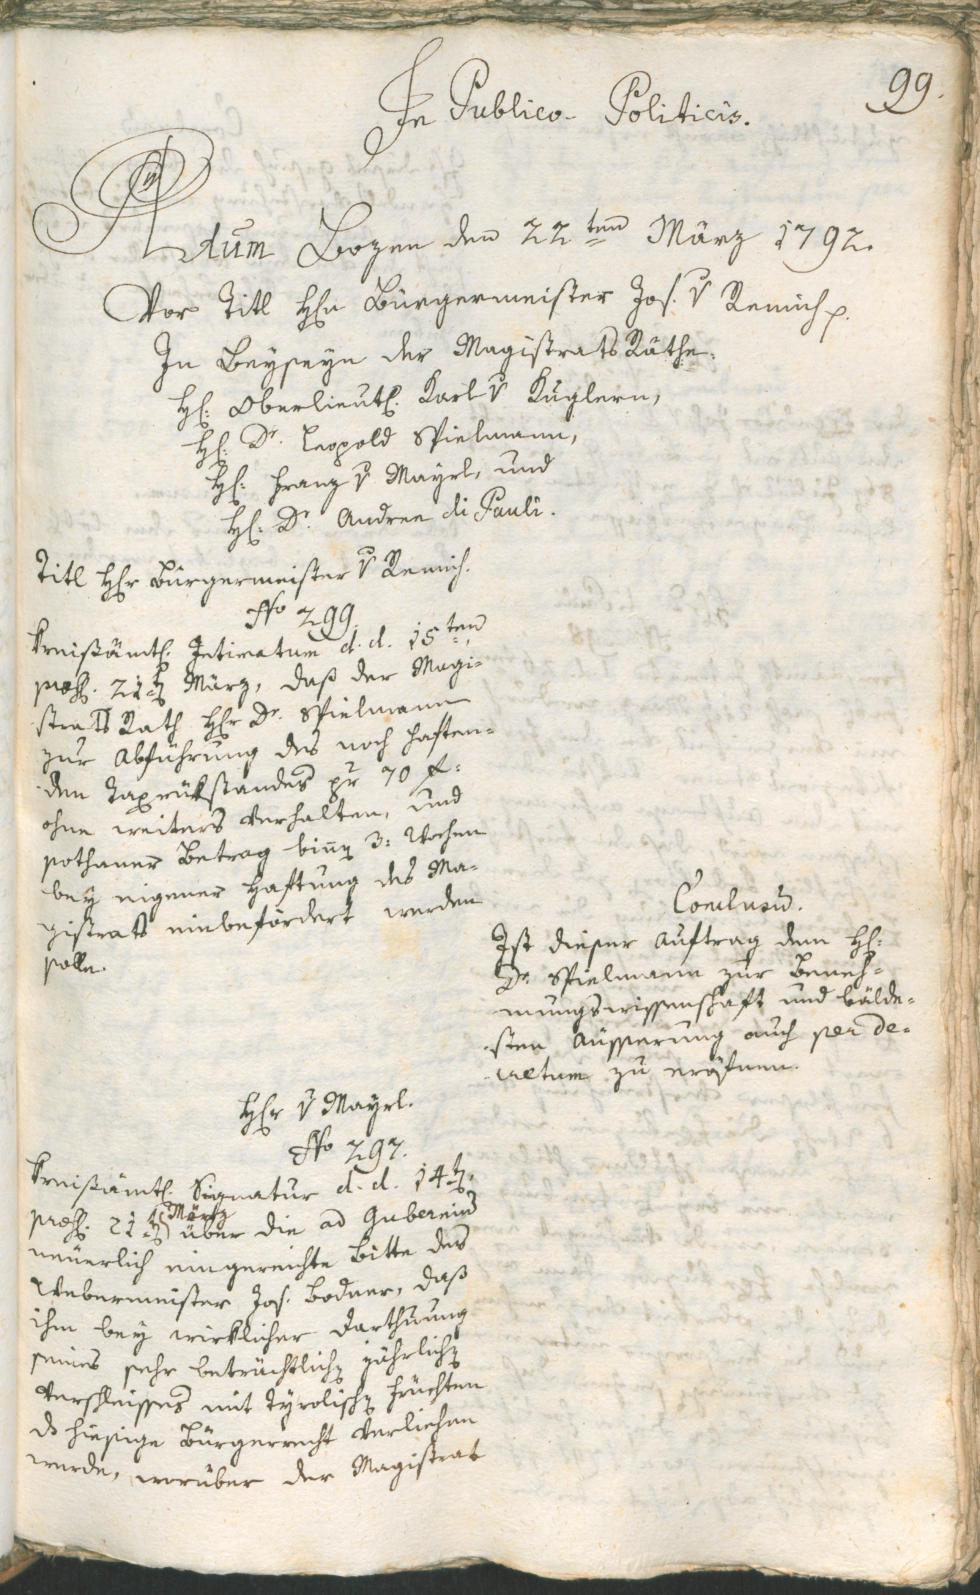 99.
In Publico-Politicis.
Actum Bozen den 22ten März 1792.
Vor Titl Hln Bürgermeister Jos. v Remich p.
In Beyseyn der Magistrats Räthe.
Hl: Oberlieutl. Karl v Kuglern,
Hl: Dr. Leopold Spielmann,
Hl: Franz v Mayrl, und
Hl: Dr. Andree di Pauli.
Titl Hlr Bürgermeister v Remich.
No 299.
Kreißämtl. Intimatum d. d. 15ten,
præs. 21t März, daß der Magi-
strats Rath Hlr Dr. Spielmann
zur Abführung des noch haften-
den Taxrükstandes pr 70 f:
ohne weiters verhalten, und
sothaner Betrag binn 3: Wochen
bey eigener Haftung des Ma-
gistrats einbefördert werden
solle.
Conclusu.
Ist dieser Auftrag dem Hl:
Dr Spielmann zur Beneh-
mungswissenschaft und bälde-
sten Äusserung auch per de-
cretum zu eröfnen.
Hlr v Mayrl.
No 297.
Kreißämtl. Signatur d. d. 14t,
præs. 21t März über die ad Gubernium
neuerlich eingereichte Bitte des
Webermeister Jos. Bodner, daß
ihm bey wirklicher Darthuung
seines sehr beträchtlich jährlich
Verschleisses mit Tyrolisch Früchten
ds hiesige Bürgerrecht verliehen
werde, worüber der Magistrat